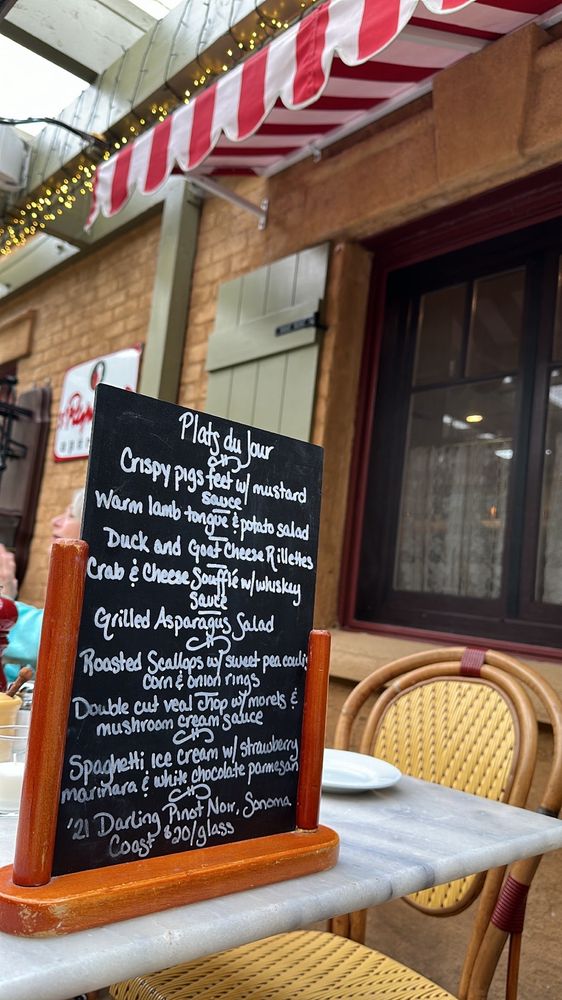 Plats du Jour
Crispy pigs feet w/ mustard
sauce
Warm lamb tongue & potato salad
Duck and Goat Cheese Rillettes
Crab & Cheese Soufflé w/ whuskey
sauce
Grilled Asparagus Salad
Roasted Scallops w/ sweet pea coulis
corn & onion rings
Double cut veal chop w/ morels &
mushroom cream sauce
Spaghetti ice cream w/ strawberry
marinara & white chocolate parmesan
'21 Darling Pinot Noir, Sonoma
Coast $20/glass